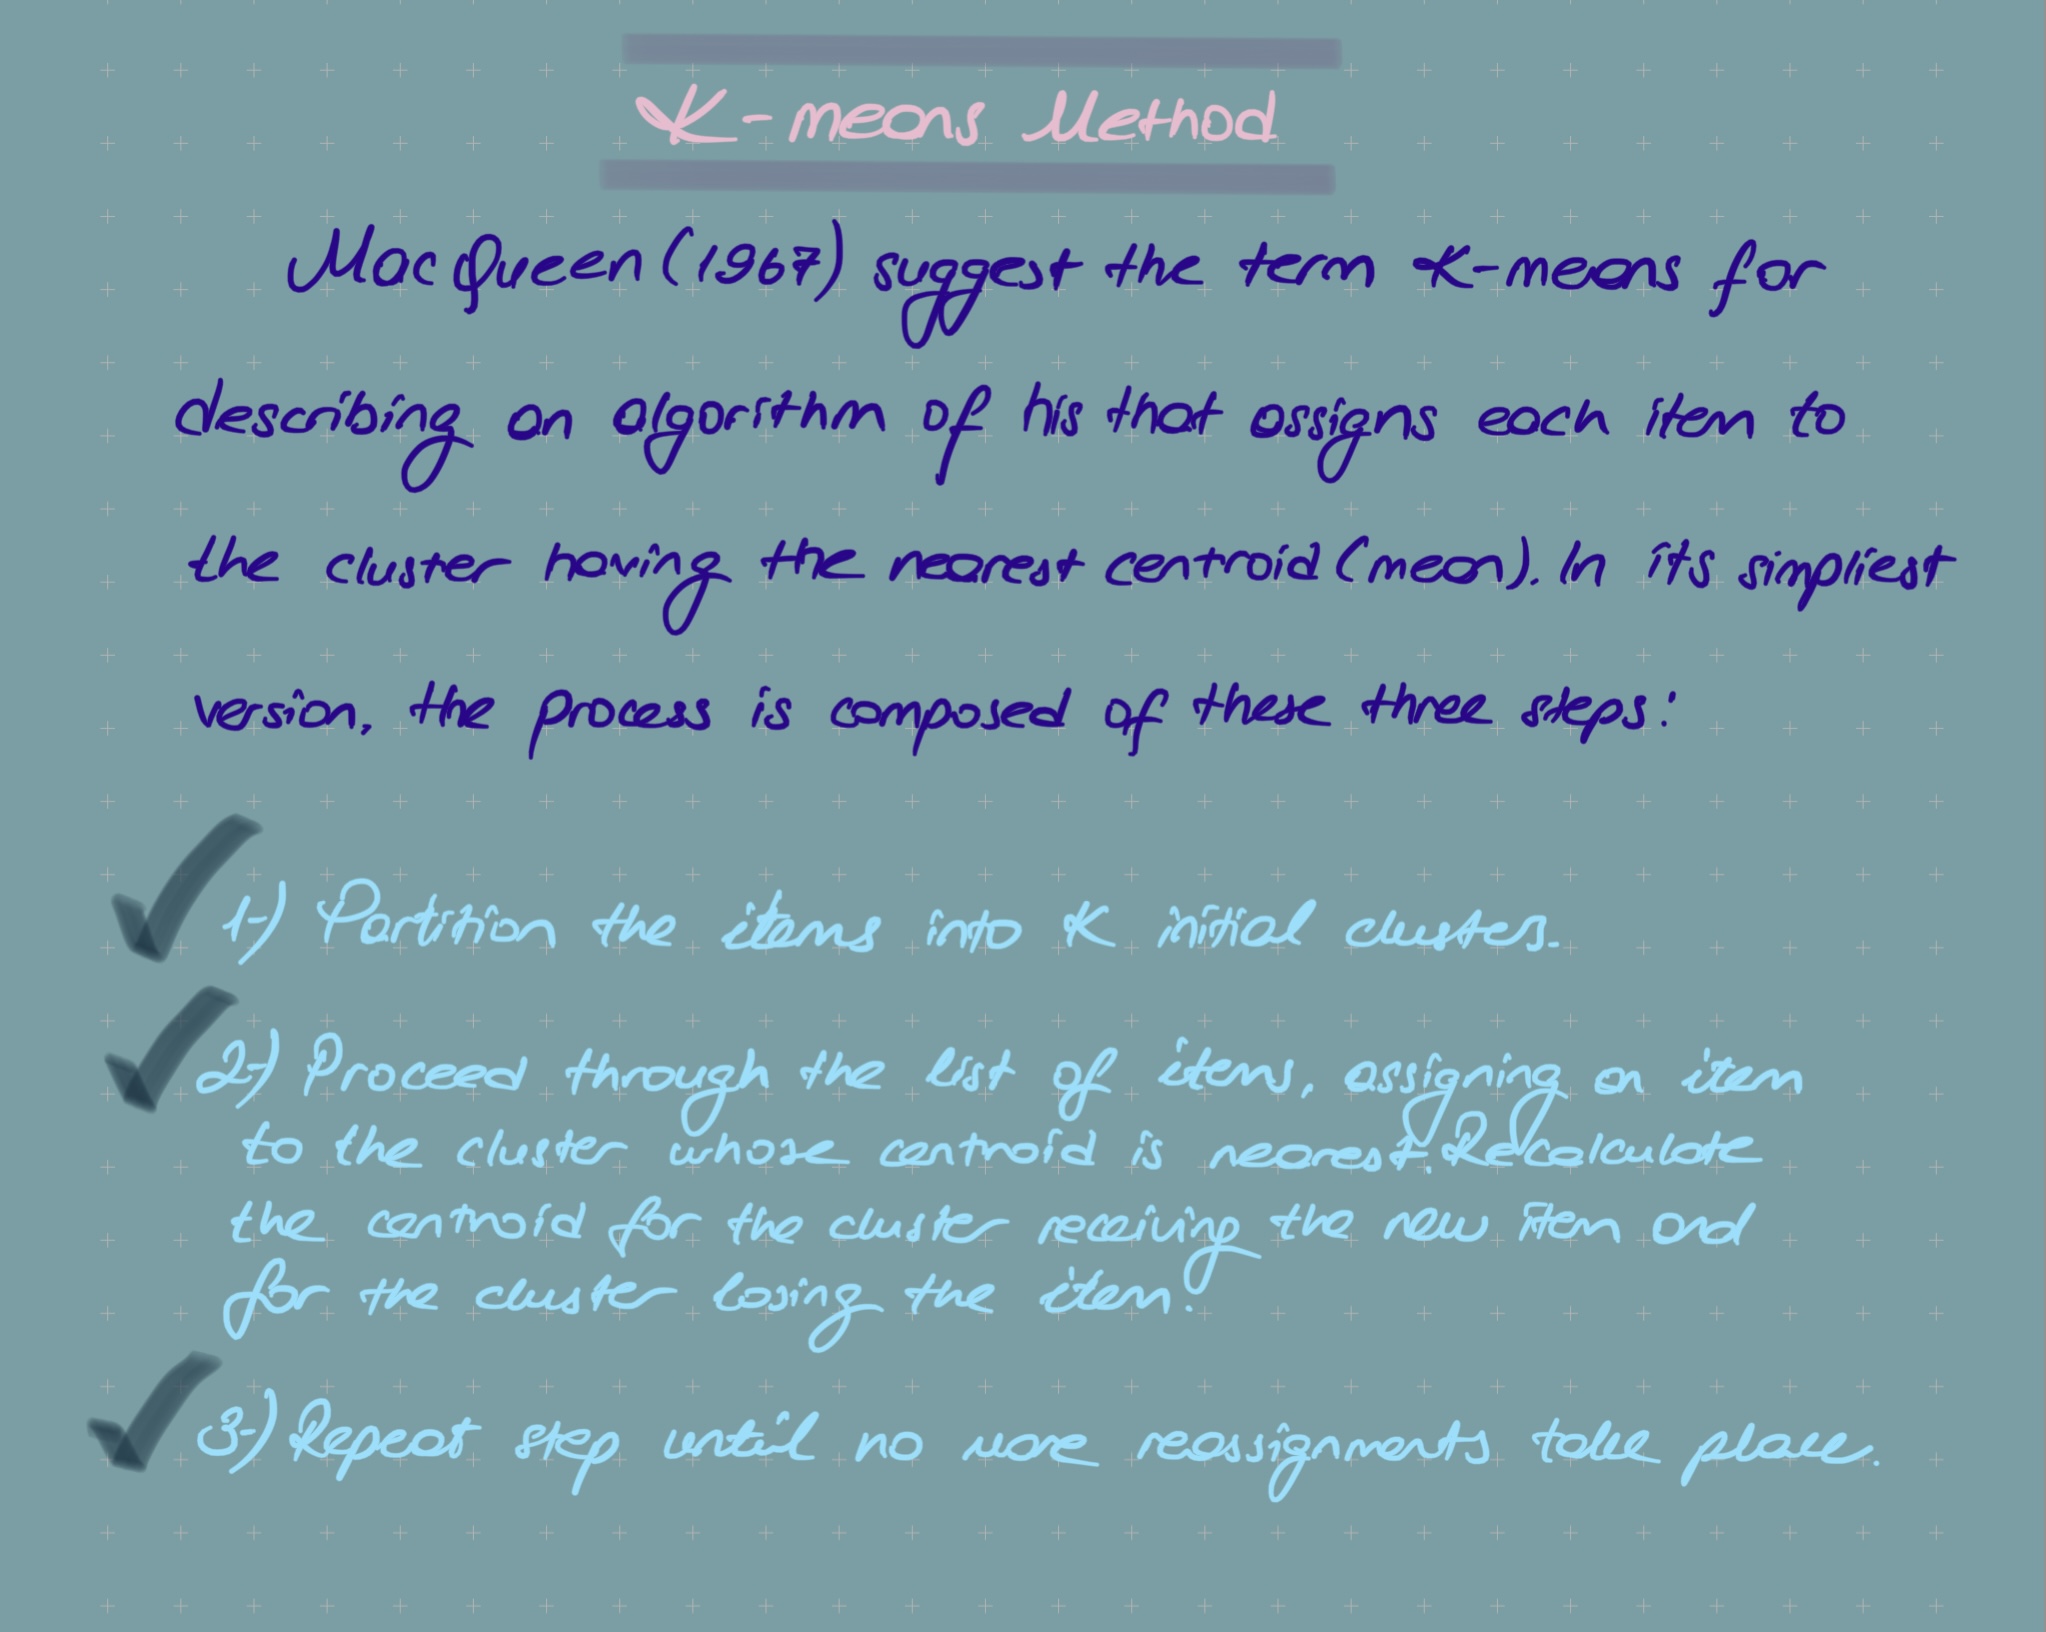 K-means Method
MacQueen (1967) suggest the term K-means for
describing an algorithm of his that assigns each item to
the cluster having the nearest centroid (mean). In its simpliest
version, the process is composed of these three steps:
1-) Partition the items into K initial clusters.
2-) Proceed through the list of items, assigning an item
to the cluster whose centroid is nearest. Recalculate
the centroid for the cluster receiving the new item and
for the cluster losing the item.
3-) Repeat step until no more reassignments take place.